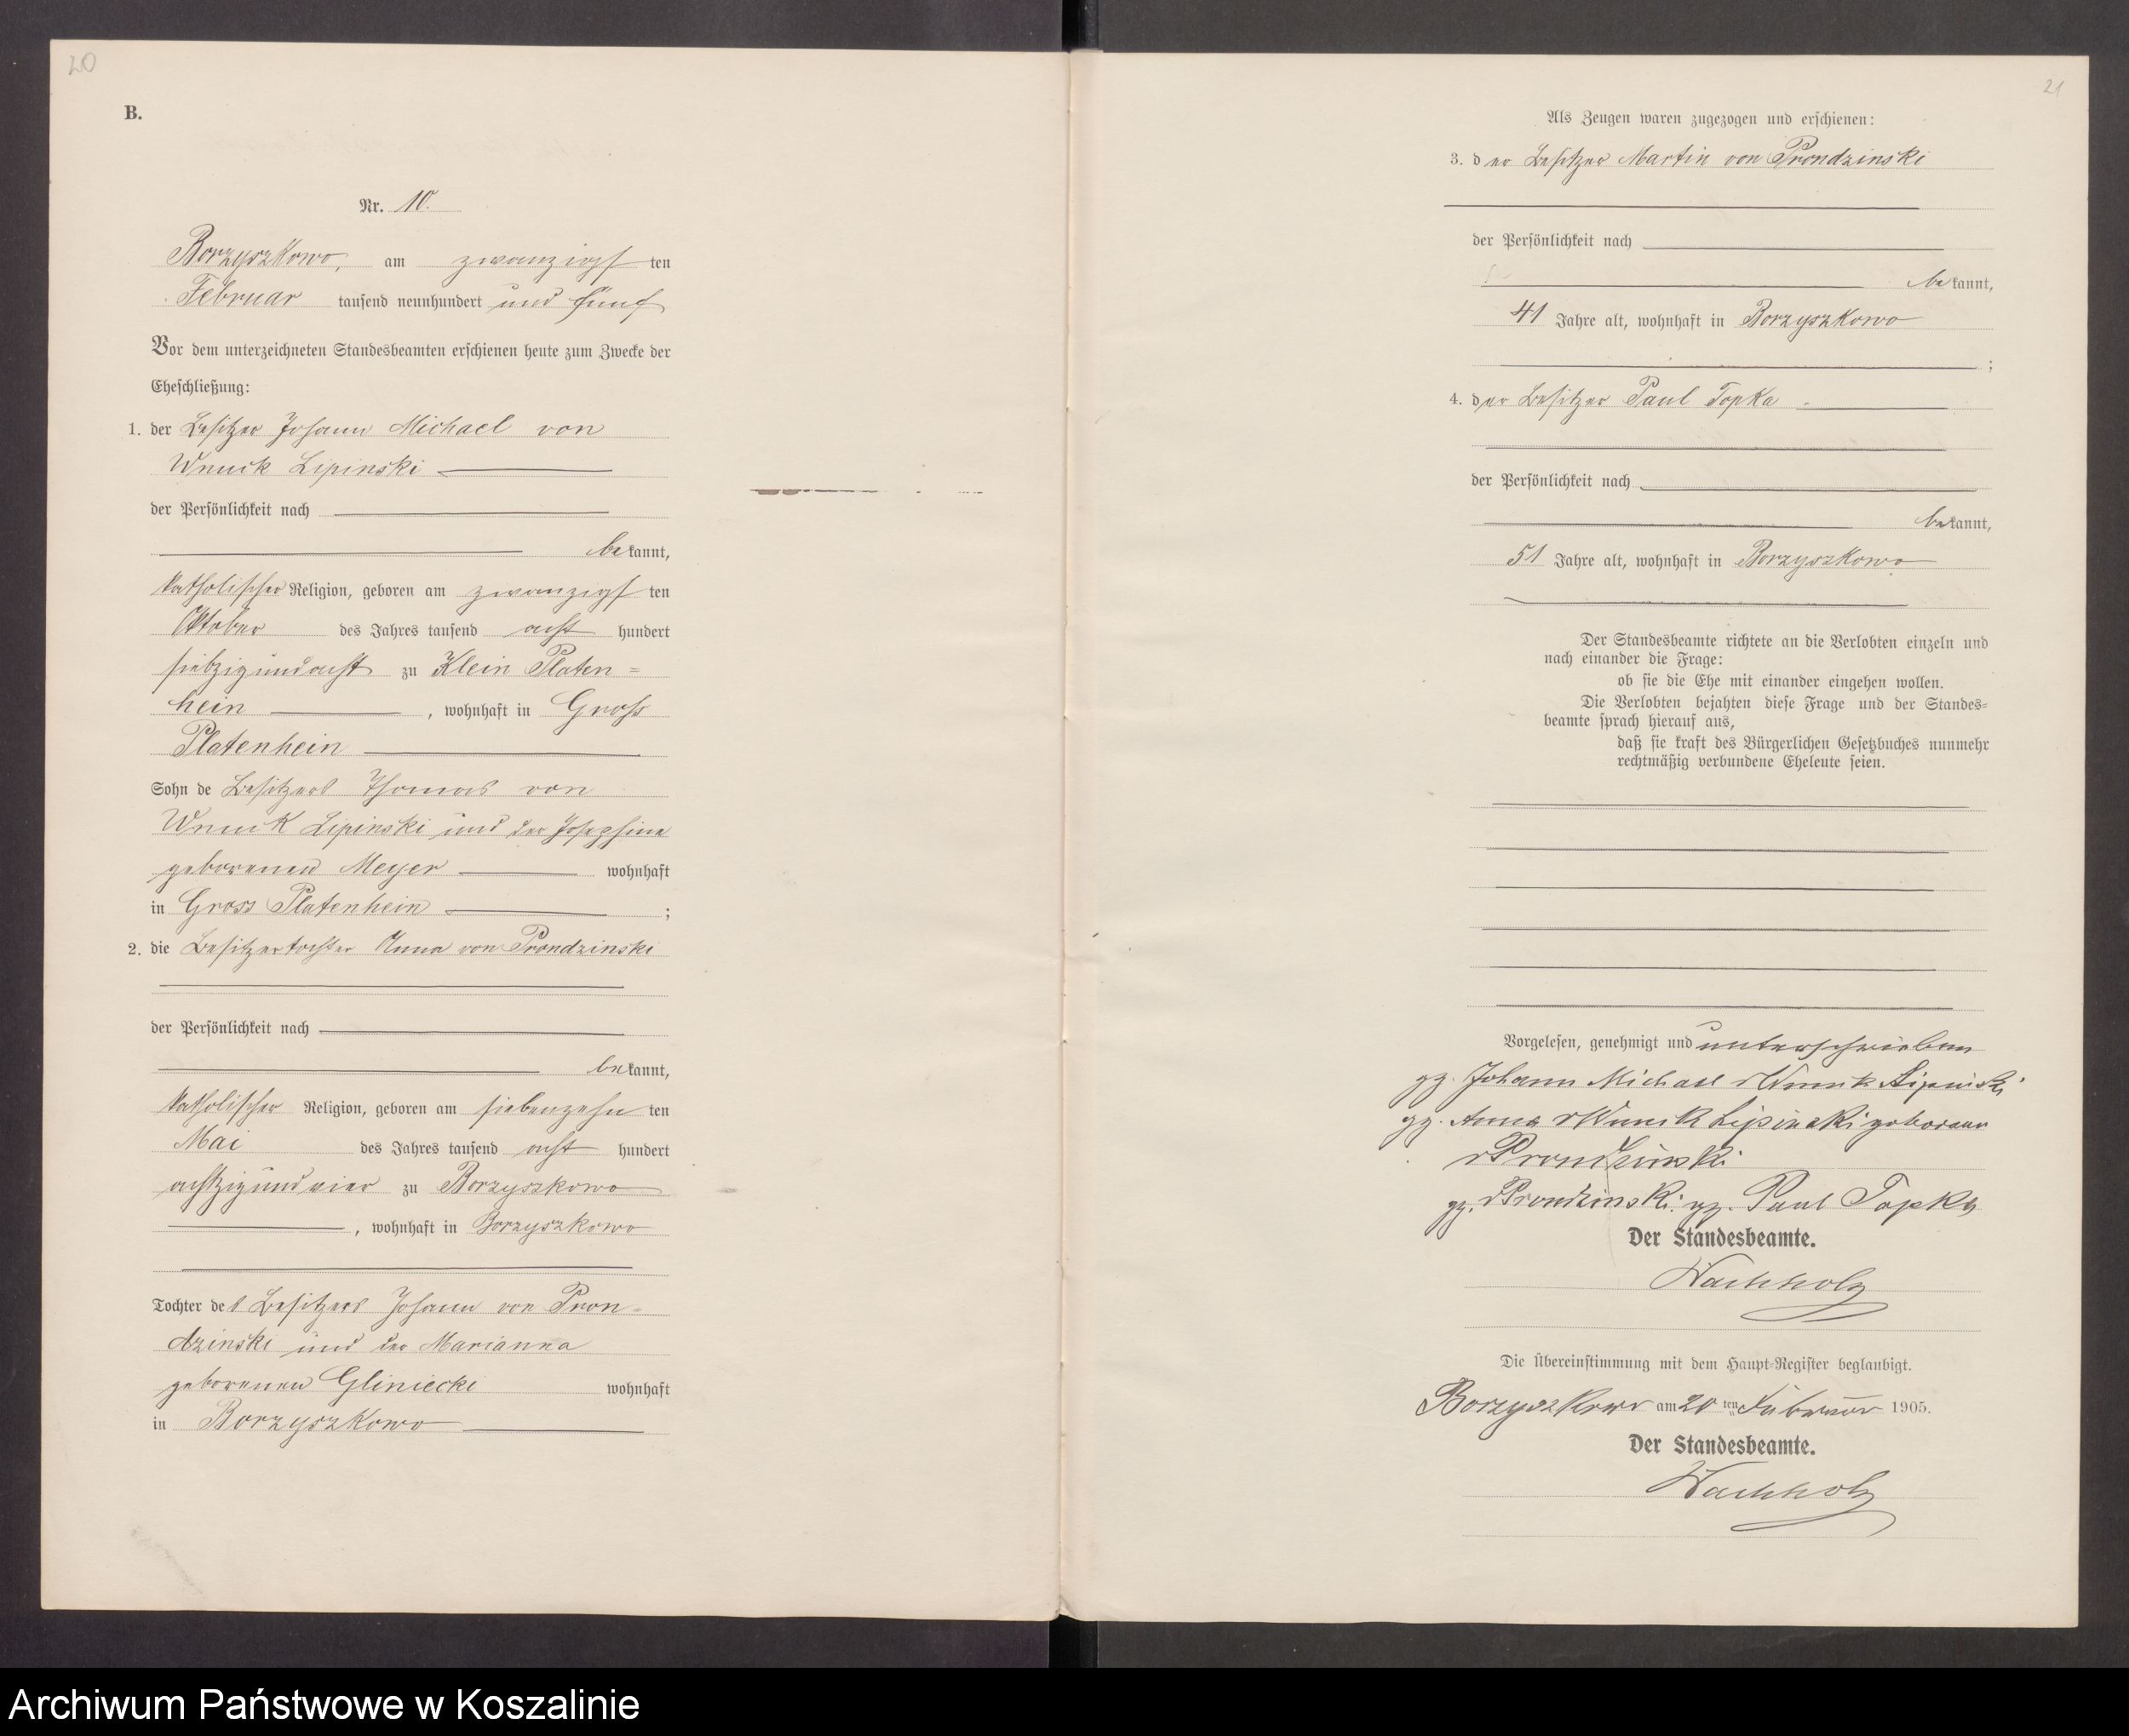 20
B.
Nr. 10.
Borzyszkowo, am zwanzigsten
Februar tausend neunhundert und fünf
Vor dem unterzeichneten Standesbeamten erschienen heute zum Zwecke der
Eheschließung:
1. der Besitzer Johann Michael von
Wnuck Lipinski
der Persönlichkeit nach
bekannt,
katholischer Religion, geboren am zwanzigsten
Oktober des Jahres tausend acht hundert
siebzigundacht zu Klein Platen=
hein, wohnhaft in Gross
Platenhein
Sohn de Besitzers Thomas von
Wnuck Lipinski und der Josephine
geborenen Meyer wohnhaft
in Gross Platenhein ;
2. die Besitzertochter Anna von Prondzinski
der Persönlichkeit nach
bekannt,
katholischer Religion, geboren am siebenzehnten
Mai des Jahres tausend acht hundert
achtzigundvier zu Borzyszkowo
, wohnhaft in Borzyszkowo
Tochter des Besitzers Johann von Pron-
dzinski und der Marianna
geborenen Gliniecki wohnhaft
in Borzyszkowo
21
Als Zeugen waren zugezogen und erschienen:
3. der Besitzer Martin von Prondzinski
der Persönlichkeit nach
bekannt,
41 Jahre alt, wohnhaft in Borzyszkowo
;
4. der Besitzer Paul Topka
der Persönlichkeit nach
bekannt,
51 Jahre alt, wohnhaft in Borzyszkowo
Der Standesbeamte richtete an die Verlobten einzeln und
nach einander die Frage:
ob sie die Ehe mit einander eingehen wollen.
Die Verlobten bejahten diese Frage und der Standes=
beamte sprach hierauf aus,
daß sie kraft des Bürgerlichen Gesetzbuches nunmehr
rechtmäßig verbundene Eheleute seien.
Vorgelesen, genehmigt und unterschrieben
gz. Johann Michael v Wnuck Lipinski
gz. Anna v Wnuck Lipinski geborene
v Prondzinski
gz. v Prondzinski. gz. Paul Topka
Der Standesbeamte.
Wachholz
Die Übereinstimmung mit dem Haupt-Register beglaubigt.
Borzyszkowo am 20 ten Februar 1905.
Der Standesbeamte.
Wachholz
Archiwum Państwowe w Koszalinie